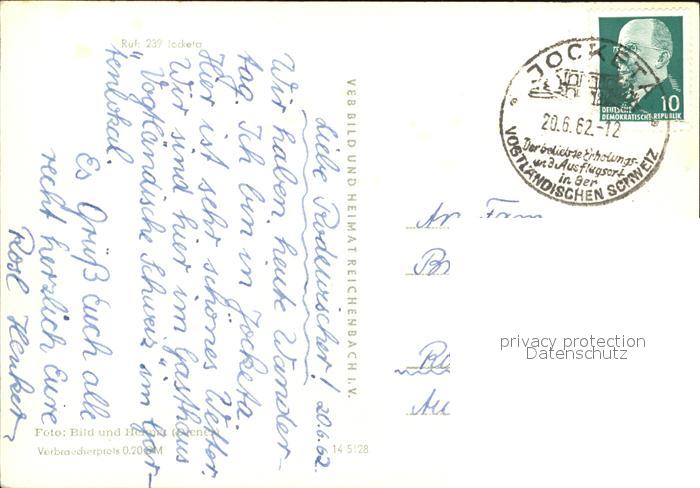 Ruf: 239 Jocketa
Liebe Rodewischer! 20.6.62.
Wir haben heute Wander-
tag. Ich bin in Jocketa.
Hier ist sehr schönes Wetter.
Wir sind hier im Gasthaus
„Vogtländische Schweiz" im Gar-
tenlokal.
Es grüßt Euch alle
recht herzlich Eure
Rosl Henker
VEB BILD UND HEIMAT REICHENBACH I. V.
Foto: Bild und Heimat
Verbraucherpreis 0.20 DM
14 5128
JOCKETA
20.6.62-12
Der beliebte Erholungs-
und Ausflugsort
in der
VOGTLÄNDISCHEN SCHWEIZ
10
DEUTSCHE
DEMOKRATISCHE REPUBLIK
An Fam
Br
Ro
Au
privacy protection
Datenschutz